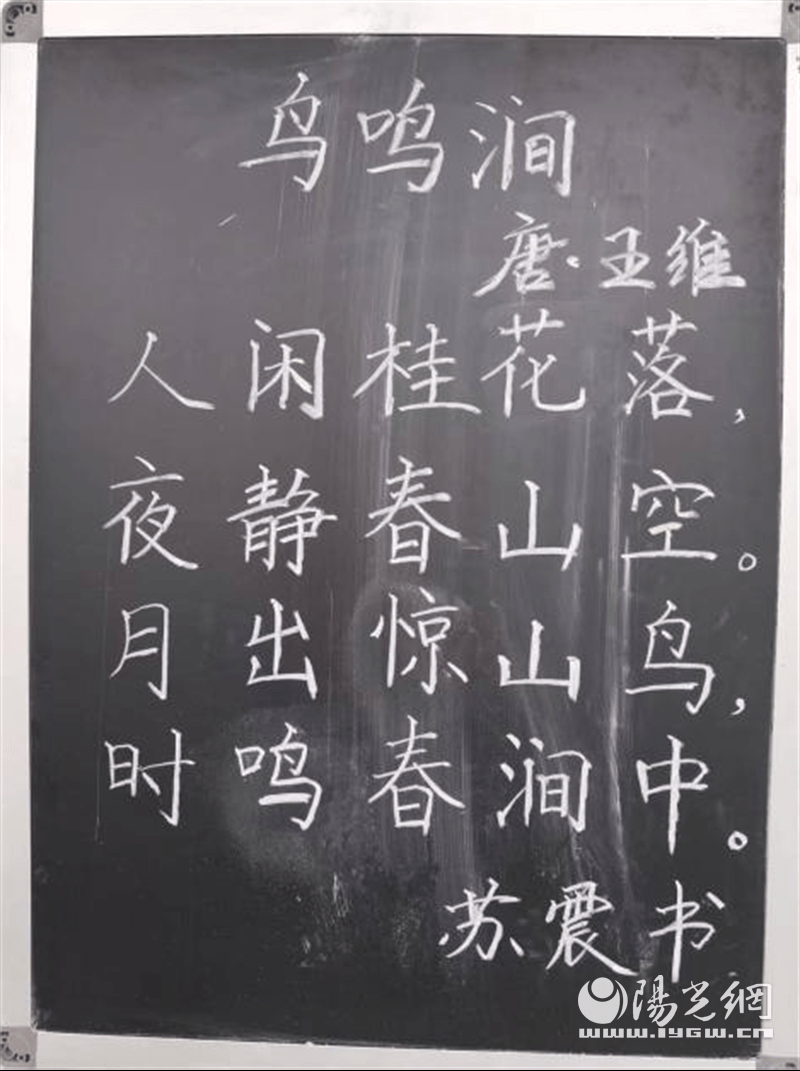 鸟鸣涧
唐·王维
人闲桂花落,
夜静春山空。
月出惊山鸟,
时鸣春涧中。
苏震书
陽光網
www.iygw.cn